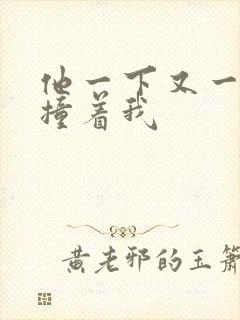 他一下又一
撞着我
黄老邪的玉箫